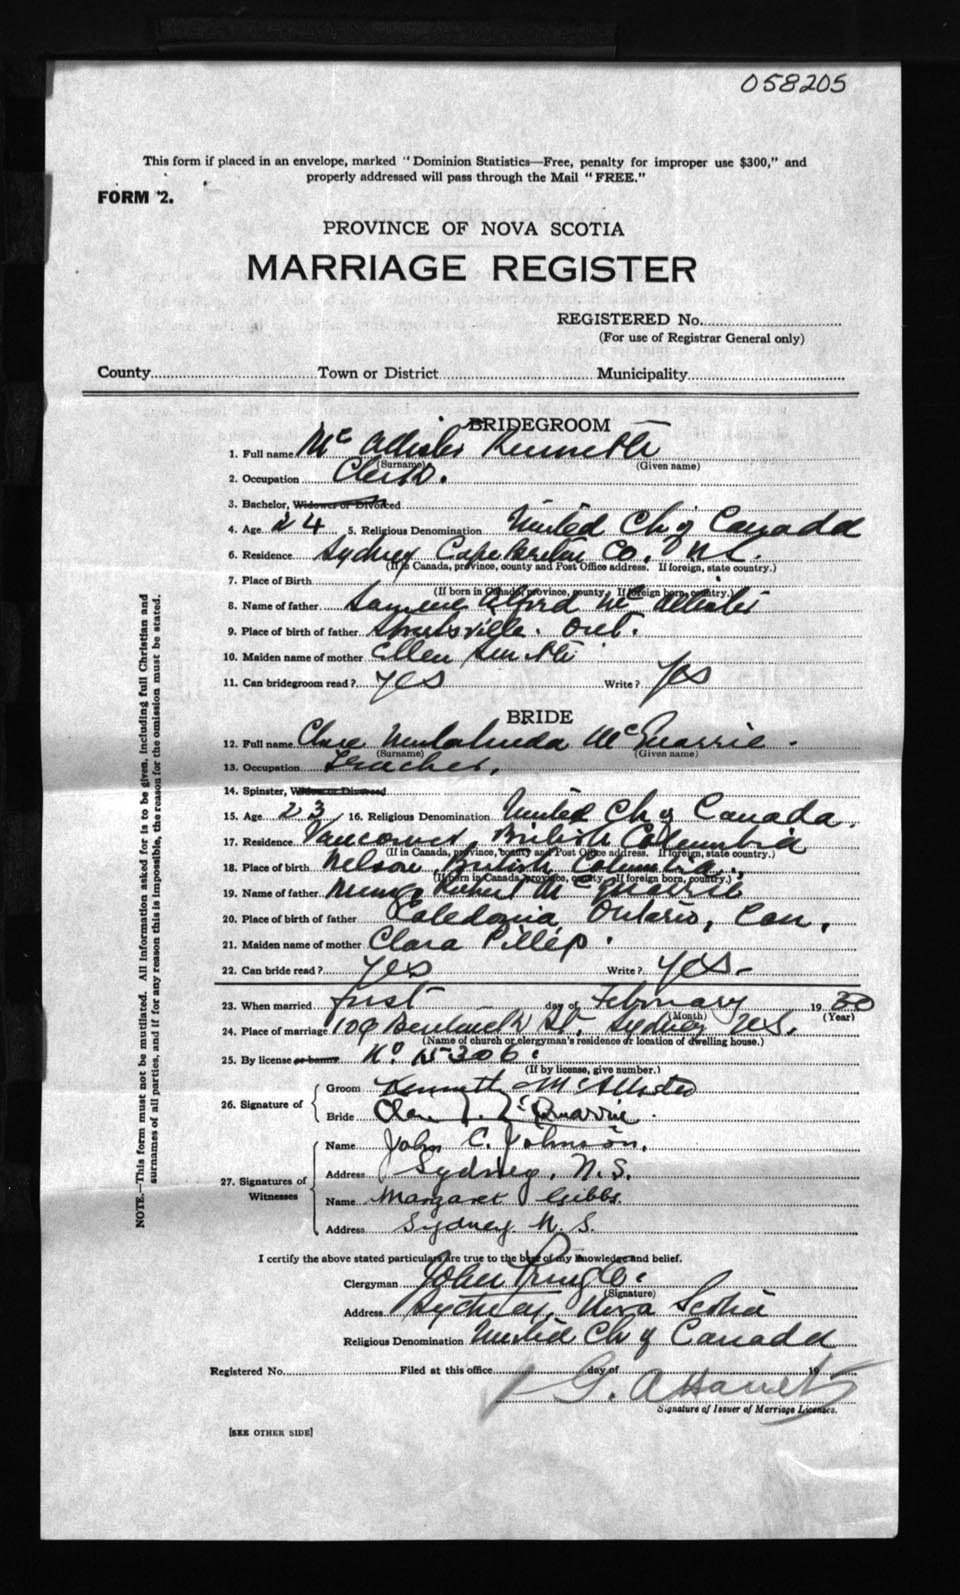 058205
This form if placed in an envelope, marked "Dominion Statistics—Free, penalty for improper use $300," and
properly addressed will pass through the Mail "FREE."
FORM 2.
PROVINCE OF NOVA SCOTIA
MARRIAGE REGISTER
REGISTERED No.
(For use of Registrar General only)
County Town or District Municipality
BRIDEGROOM
1. Full name McAllister Kenneth
(Surname) (Given name)
2. Occupation Clerk.
3. Bachelor, Widower or Divorced
4. Age 24 5. Religious Denomination United Ch of Canada
6. Residence Sydney Cape Breton Co, N.S.
(If in Canada, province, county and Post Office address. If foreign, state country.)
7. Place of Birth
(If born in Canada, province, county. If foreign born, country.)
8. Name of father Alfred McAllister
9. Place of birth of father Ont.
10. Maiden name of mother Ellen
11. Can bridegroom read? yes Write? yes
BRIDE
12. Full name McQuarrie.
(Surname) (Given name)
13. Occupation Teacher.
14. Spinster, Widow or Divorced
15. Age 23 16. Religious Denomination United Ch of Canada.
17. Residence Vancouver, British Columbia
(If in Canada, province, county and Post Office address. If foreign, state country.)
18. Place of birth Nelson, British Columbia,
(If born in Canada, province, county. If foreign born, country.)
19. Name of father Robert McQuarrie
20. Place of birth of father Caledonia, Ontario, Can.
21. Maiden name of mother Clara
22. Can bride read? yes Write? yes.
23. When married first day of February 1930
(Month) (Year)
24. Place of marriage 109 Bentinck St. Sydney N.S.
(Name of church or clergyman's residence or location of dwelling house.)
25. By license or banns No. 15306.
(If by license, give number.)
26. Signature of
Groom Kenneth McAllister
Bride McQuarrie.
27. Signatures of Witnesses
Name John C. Johnson.
Address Sydney, N.S.
Name Margaret Gibbs.
Address Sydney N.S.
I certify the above stated particulars are true to the best of my knowledge and belief.
Clergyman John Pringle.
(Signature)
Address Sydney, Nova Scotia
Religious Denomination United Ch of Canada
Registered No. Filed at this office day of 19
G. A.
Signature of Issuer of Marriage Licenses.
[SEE OTHER SIDE]
NOTE.—This form must not be mutilated. All information asked for is to be given, including full Christian and
surnames of all parties, and if for any reason this is impossible, the reason for the omission must be stated.